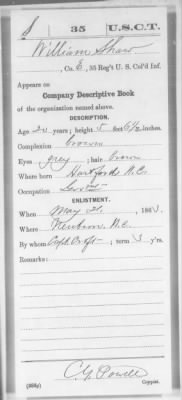 S | 35 | U.S.C.T.
William Shaw
, Co. E, 35 Reg't U. S. Col'd Inf.
Appears on
Company Descriptive Book
of the organization named above.
DESCRIPTION.
Age 20 years; height 5 feet 6½ inches.
Complexion brown
Eyes grey; hair brown
Where born Hartford N.C.
Occupation
ENLISTMENT.
When May 21, 1863.
Where Newbern, N.C.
By whom Capt. Croft; term 3 y'rs.
Remarks:
C. G. Powell
(383g) Copyist.